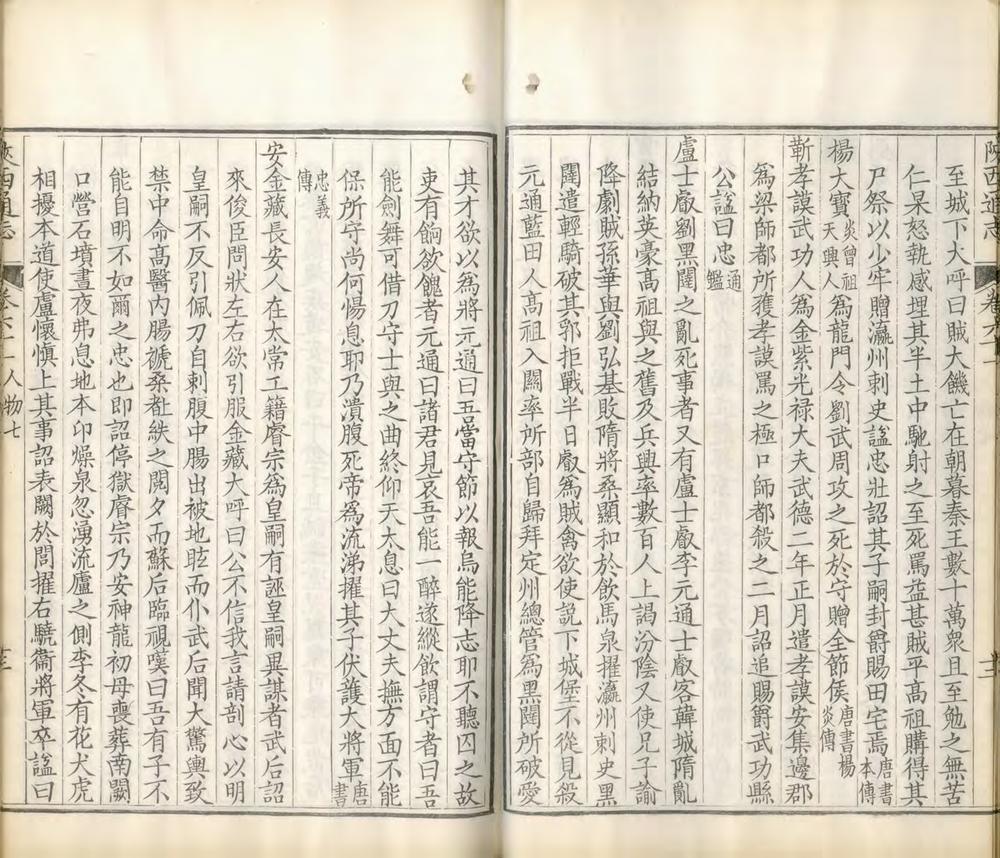 陝西通志 卷六十
至城下大呼曰賊大饑亡在朝暮秦王數十萬衆且至勉之無苦
仁杲怒執感埋其半土中馳射之至死罵益甚賊平高祖購得其
尸祭以少牢贈瀛州刺史諡忠壯詔其子嗣封爵賜田宅焉唐書本傳
楊大寶炎曾祖天興人爲龍門令劉武周攻之死於守贈全節侯唐書楊炎傳
靳孝謨武功人爲金紫光禄大夫武德二年正月遣孝謨安集邊郡
爲梁師都所獲孝謨罵之極口師都殺之二月詔追賜爵武功縣
公諡曰忠通鑑
盧士叡劉黑闥之亂死事者又有盧士叡李元通士叡客韓城隋亂
結納英豪高祖與之舊及兵興率數百人上謁汾陰又使兄子諭
降劇賊孫華與劉弘基敗隋將桑顯和於飲馬泉擢瀛州刺史黑
闥遣輕騎破其郛拒戰半日叡爲賊禽欲使説下城堡不從見殺
元通藍田人高祖入關率所部自歸拜定州總管爲黑闥所破愛
其才欲以爲將元通曰吾當守節以報烏能降志耶不聽囚之故
吏有餉欲餽者元通曰諸君見哀吾能一醉遂縱飲謂守者曰吾
能劍舞可借刀守士與之曲終仰天大息曰大丈夫撫方面不能
保所守尚何惕息耶乃潰腹死帝爲流涕擢其子伏護大將軍唐書
忠義傳
安金藏長安人在太常工籍睿宗爲皇嗣有誣皇嗣異謀者武后詔
來俊臣問狀左右欲引服金藏大呼曰公不信我言請剖心以明
皇嗣不反引佩刀自刺腹中腸出被地眩而仆武后聞大驚輿致
禁中命高醫内腸褫桑𣗥紩之閱夕而蘇后臨視嘆曰吾有子不
能自明不如爾之忠也即詔停獄睿宗乃安神龍初母喪葬南闕
口營石墳晝夜弗息地本卬燥泉忽湧流廬之側李冬有花犬虎
相擾本道使盧懷慎上其事詔表闕於閭擢右驍衞將軍卒諡曰
陝西通志 卷六十一人物七